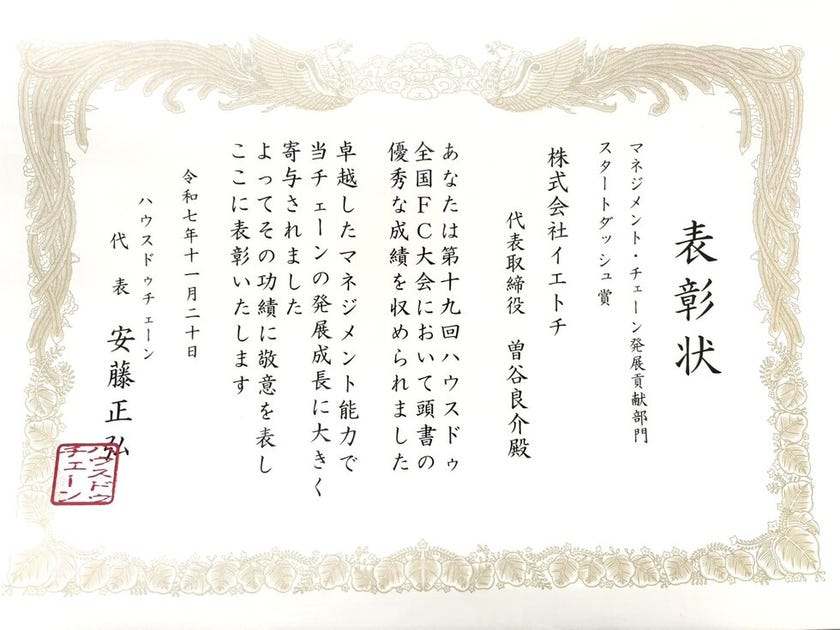 表彰状
マネジメント・チェーン発展貢献部門
スタートダッシュ賞
株式会社イエトチ
代表取締役 曽谷良介殿
あなたは第十九回ハウスドゥ
全国FC大会において頭書の
優秀な成績を収められました
卓越したマネジメント能力で
当チェーンの発展成長に大きく
寄与されました
よってその功績に敬意を表し
ここに表彰いたします
令和七年十一月二十日
ハウスドゥチェーン
代表 安藤正弘
ハウスドゥ
チェーン